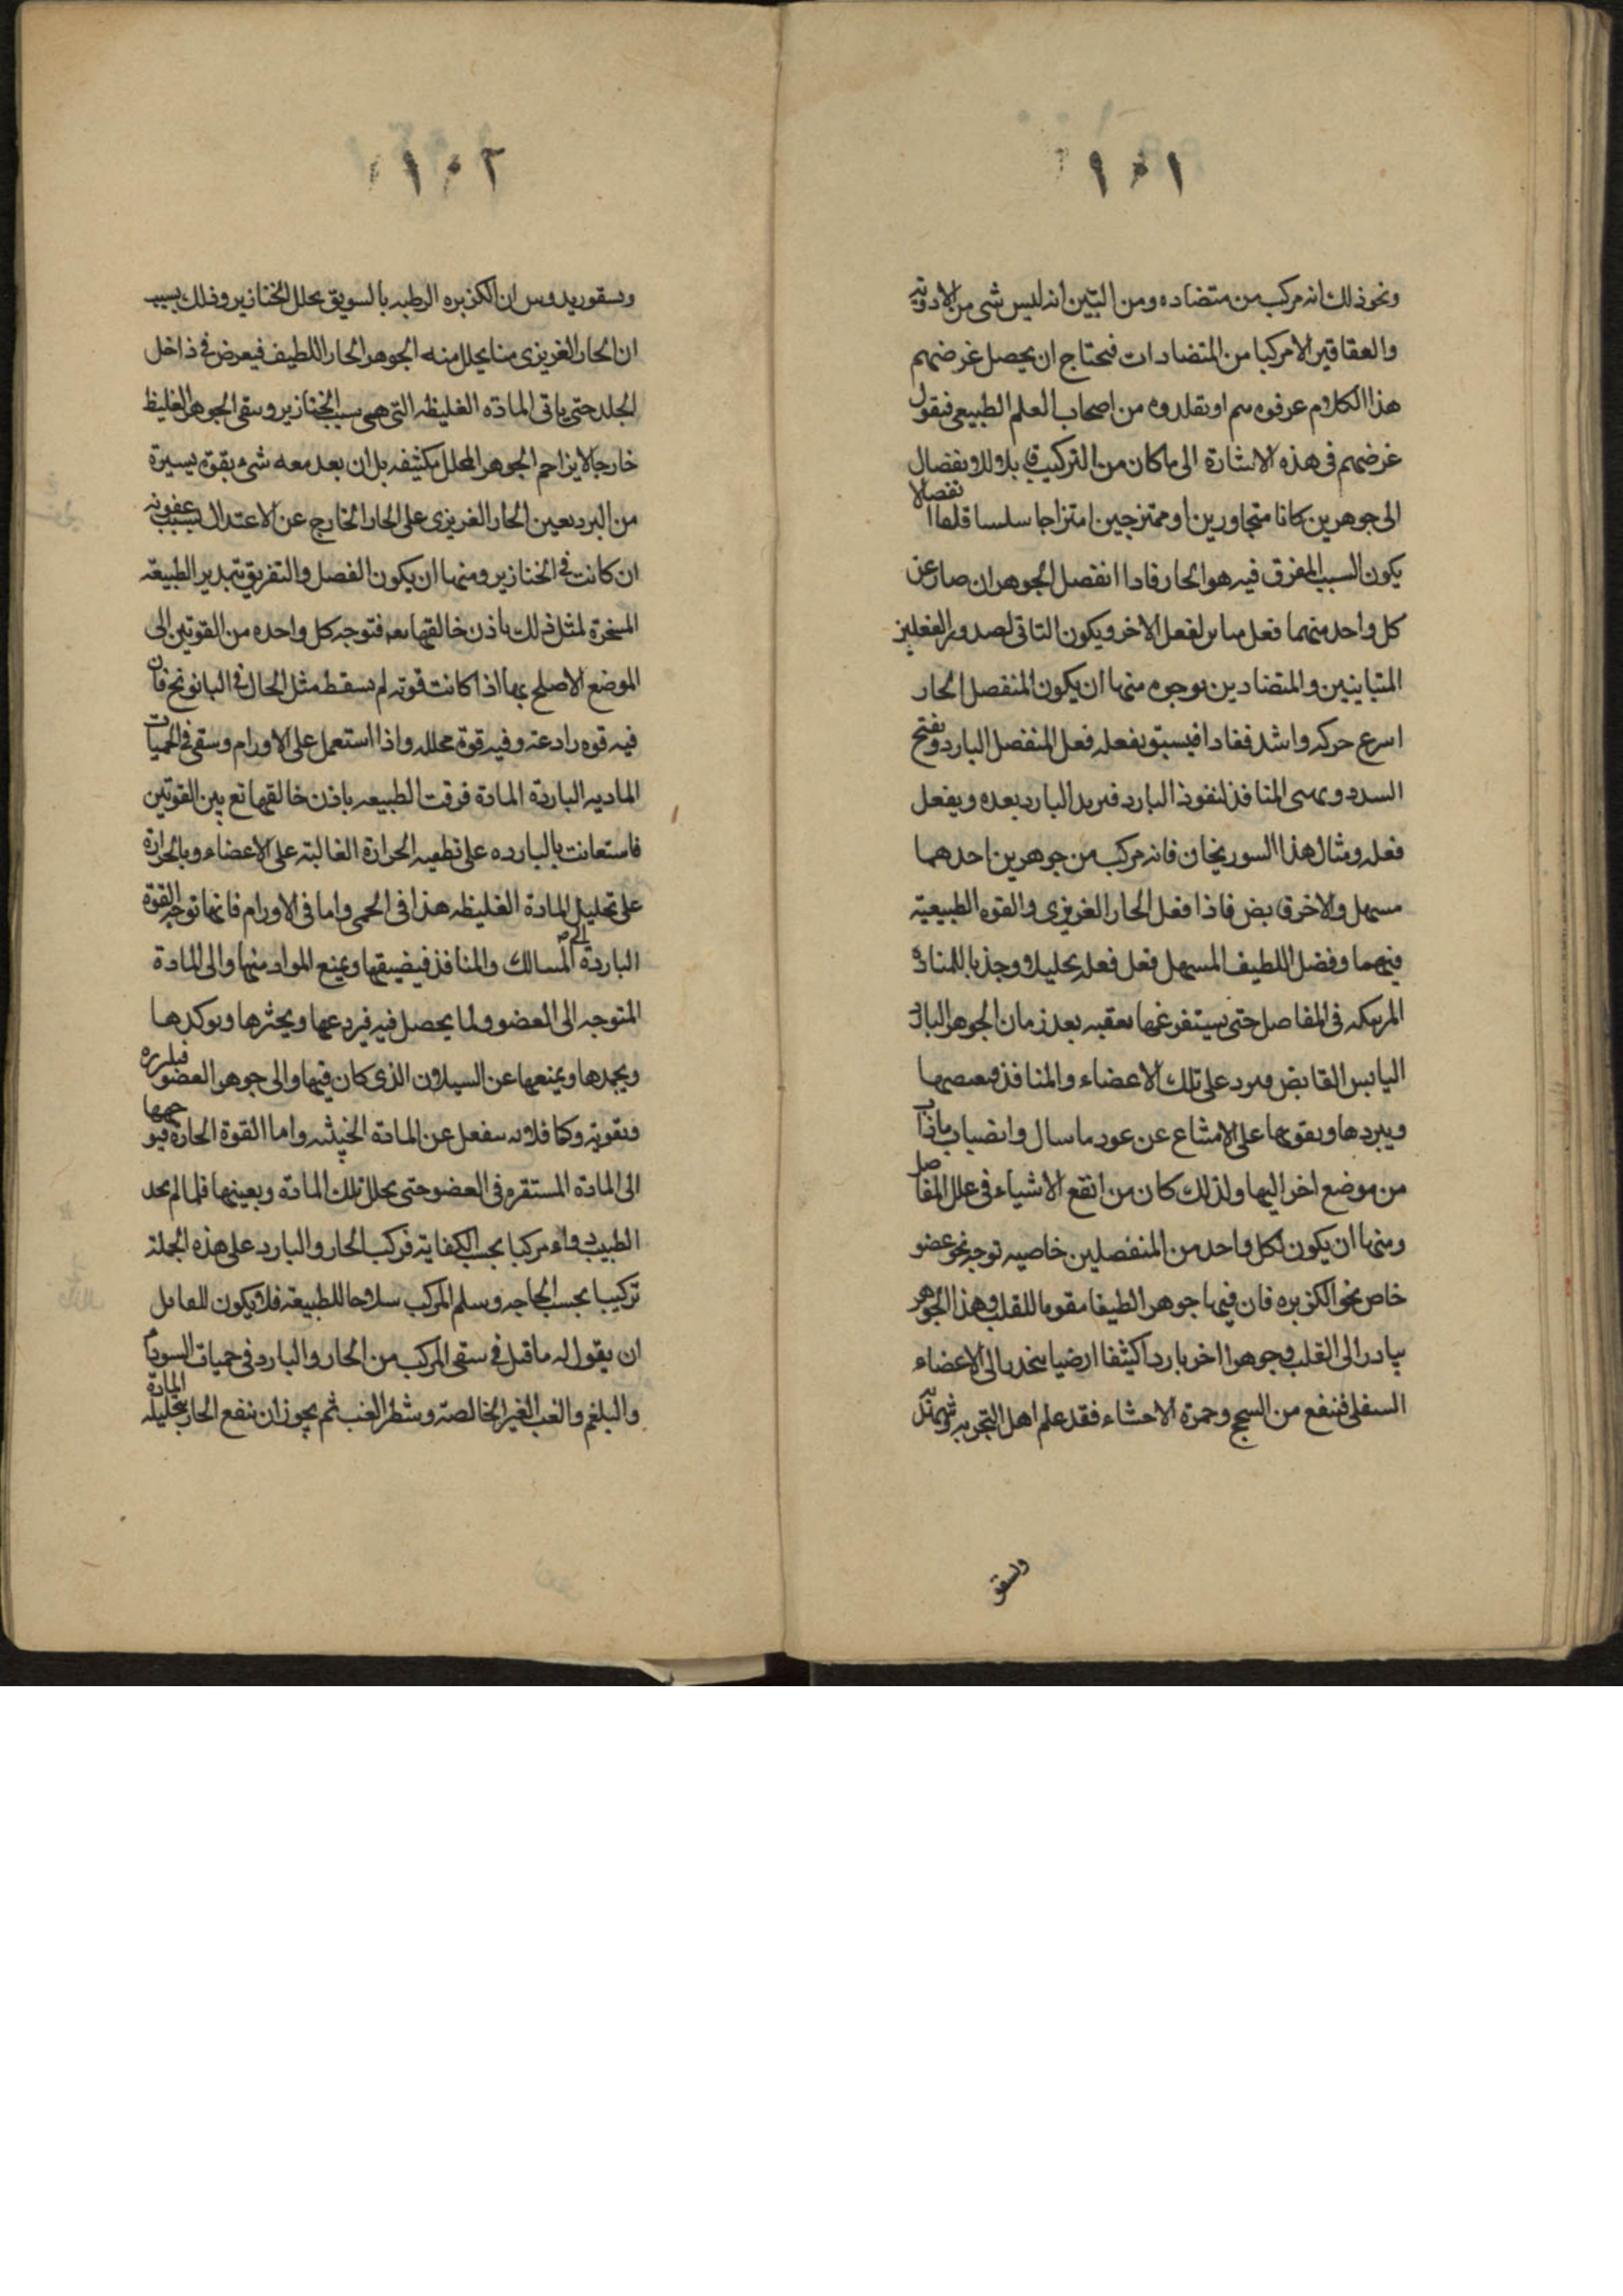 ١٠١
ونحو ذلك انه مركب من متضاده ومن البين انه ليس شى من الادويه
والعقاقير الا مركبا من المتضادات فنحتاج ان يحصل غرضهم
هذا الكلام عرفوه هم او تقلدوه من اصحاب العلم الطبيعى فنقول
غرضهم فى هذه الاشارة الى ما كان من التركيب قابلا للانفصال
الى جوهرين كانا متجاورين او ممتزجين امتزاجا سلسا انفصالا
يكون السبب المفرق فيه هو الحار فاذا انفصل الجوهران صار عن
كل واحد منهما فعل مباين لفعل الاخر ويكون التاتى لصدور الفعلين
المتباينين والمتضادين بوجوه منها ان يكون المنفصل الحار
اسرع حركه واشد نفاذا فيسبق بفعله فعل المنفصل البارد ويفتح
السدد ويهيى المنافذ لنفوذ البارد فيرد البارد بعده ويفعل
فعله ومثال هذا السورنجان فانه مركب من جوهرين احدهما
مسهل والاخر قابض فاذا فعل الحار الغريزى والقوه الطبيعية
فيهما وفصل اللطيف المسهل فعل فعله تحليلا وجذبا للمادة
المرتبكه فى المفاصل حتى يستفرغها يعقبه بعد زمان الجوهر البارد
اليابس القابض فيرد على تلك الاعضاء والمنافذ فيعصبها
ويبردها ويقويها على الامتناع عن عود ما سال وانصباب ماذاب
من موضع اخر اليها ولذلك كان من انفع الاشياء فى علل المفاصل
ومنها ان يكون لكل واحد من المنفصلين خاصيه توجه نحو عضو
خاص نحو الكزبره فان فيها جوهرا لطيفا مقويا للقلب وهذا الجوهر
يبادر الى القلب وجوهرا اخر باردا كثيفا ارضيا ينحدر الى الاعضاء
السفلى فينفع من السحج وحمرة الاحشاء فقد علم اهل التجربه
وديسقو
١٠٢
وديسقوريدوس ان الكزبره الرطبه بالسويق يحلل الخنازير وذلك بسبب
ان الحار الغريزى منا يحلل منه الجوهر الحار اللطيف فيعرض فى داخل
الجلد حتى ياتى المادة الغليظه التى هى سبب الخنازير ويبقى الجوهر الغليظ
خارجا لا يزاحم الجوهر المحلل بكثيفه بل ان بعد معه شىء بقوة يسيرة
من البرد يعين الحار الغريزى على الحار الخارج عن الاعتدال بسبب عفونه
ان كانت فى الخنازير ومنها ان يكون الفصل والتفريق بتدبير الطبيعة
المسخرة لمثل ذلك باذن خالقها تعه فتوجه كل واحده من القوتين الى
الموضع الاصلح بها اذا كانت قوته لم يسقط مثل الحال فى البابونج فان
فيه قوه رادعة وفيه قوة محلله واذا استعمل على الاورام وسقى فى الحميات
الماديه الباردة المادة فرقت الطبيعه باذن خالقها تع بين القوتين
فاستعانت بالبارده على تطفيه الحرارة الغالبة على الاعضاء وبالحرارة
على تحليل المادة الغليظه هذا فى الحمى واما فى الاورام فانها توجه القوة
الباردة الى المسالك والمنافذ فيضيقها ويمنع المواد منها والى المادة
المتوجه الى العضو ولما يحصل فيه فيردعها ويخثرها ويوكدها
ويجمدها ويمنعها عن السيلان الذى كان فيها والى جوهر العضو فيلززه
فيقويه وكما فلانه ينفعل عن المادة الخبيثه واما القوة الحارة فيوجهها
الى المادة المستقره فى العضو حتى يحلل تلك المادة ويعينها فلما لم يجد
الطبيب دواء مركبا بحسب الكفاية فركب الحار والبارد على هذه الجملة
تركيبا بحسب الحاجه وسلم المركب سلاحا للطبيعة فلا يكون للقائل
ان يقول له ما قيل فى سقى المركب من الحار والبارد فى حميات السوداء
والبلغم والغب الغير الخالصة وشطر الغب ثم يجوز ان ينفع الحار بتحليله المادة